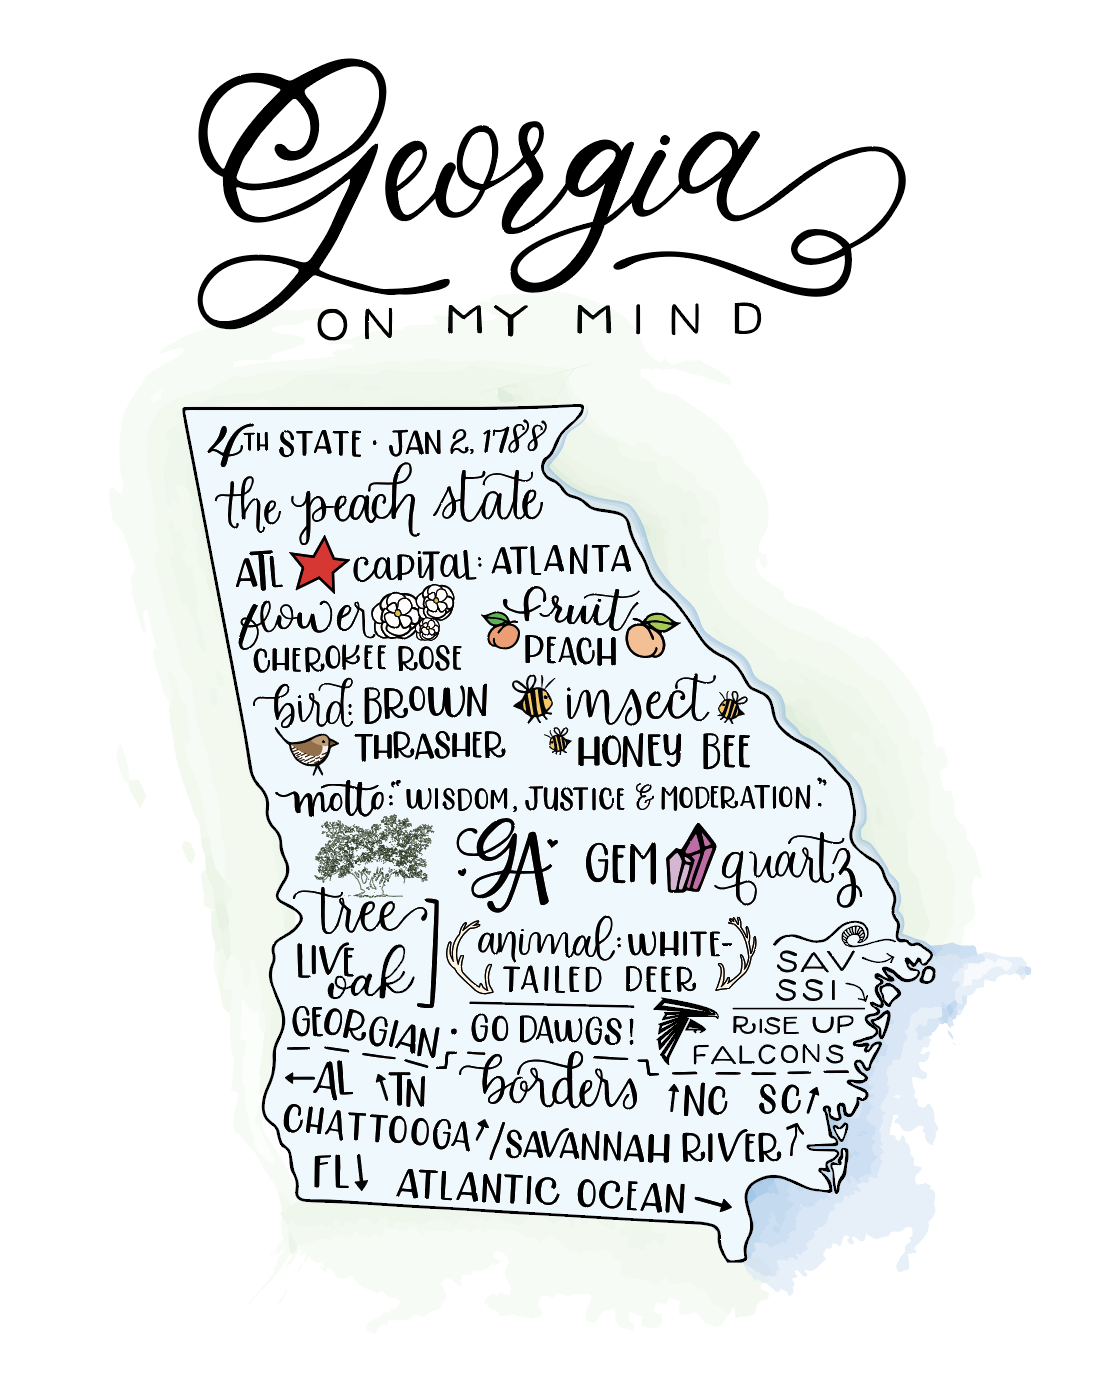 Georgia
ON MY MIND
4TH STATE · JAN 2, 1788
the peach state
ATL CAPITAL: ATLANTA
flower fruit
CHEROKEE ROSE PEACH
bird: BROWN insect
THRASHER HONEY BEE
motto: "WISDOM, JUSTICE & MODERATION."
GA GEM quartz
tree
LIVE oak
animal: WHITE-
TAILED DEER
SAV
SSI
GEORGIAN · GO DAWGS!
RISE UP
FALCONS
←AL ↑TN borders ↑NC SC↑
CHATTOOGA↑/SAVANNAH RIVER↑
FL↓ ATLANTIC OCEAN →